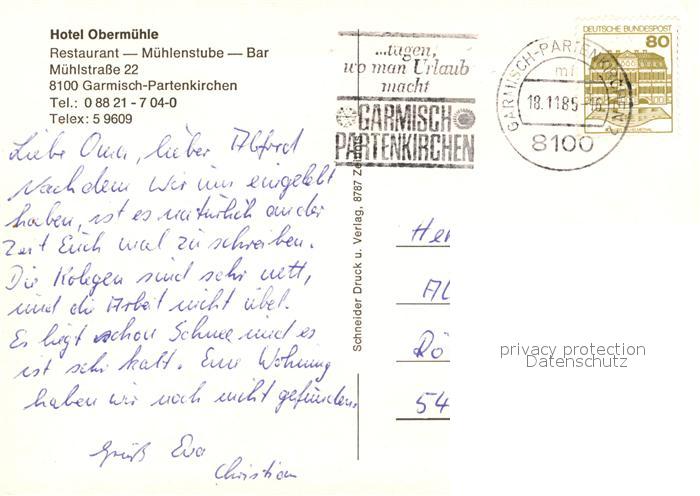 Hotel Obermühle
Restaurant — Mühlenstube — Bar
Mühlstraße 22
8100 Garmisch-Partenkirchen
Tel.: 0 88 21 - 7 04-0
Telex: 5 9609
...tagen,
wo man Urlaub
macht
GARMISCH
PARTENKIRCHEN
GARMISCH-PARTENKIRCHEN 2
mf
18.11.85-16
8100
DEUTSCHE BUNDESPOST
80
Liebe Oma, lieber Alfred
Nachdem wir uns eingelebt
haben, ist es natürlich an der
Zeit Euch mal zu schreiben.
Die Kolegen sind sehr nett,
und die Arbeit nicht übel.
Es liegt schon Schnee und es
ist sehr kalt. Eine Wohnung
haben wir noch nicht gefunden.
Gruß Eva
Christian
Schneider Druck u. Verlag, 8787 Zeitlofs
Her
Al
Rö
54
privacy protection
Datenschutz